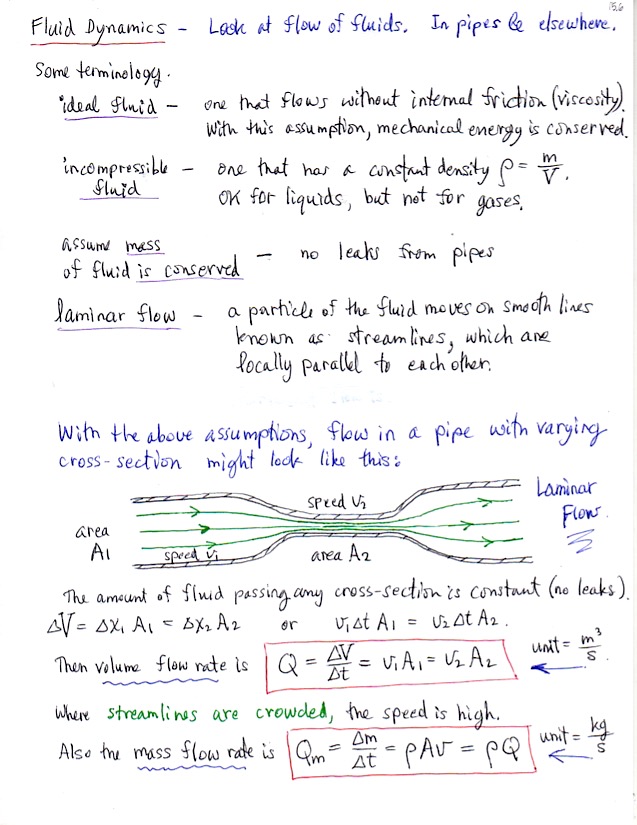 15.6
Fluid Dynamics - Look at flow of fluids. In pipes & elsewhere.
Some terminology.
ideal fluid - one that flows without internal friction (viscosity).
With this assumption, mechanical energy is conserved.
incompressible - one that has a constant density ρ = m/V.
fluid OK for liquids, but not for gases.
assume mass
of fluid is conserved - no leaks from pipes
laminar flow - a particle of the fluid moves on smooth lines
known as streamlines, which are
locally parallel to each other.
With the above assumptions, flow in a pipe with varying
cross-section might look like this:
speed v₂
Laminar
Flow.
area
A₁
speed v₁
area A₂
The amount of fluid passing any cross-section is constant (no leaks).
ΔV = Δx₁ A₁ = Δx₂ A₂ or v₁Δt A₁ = v₂Δt A₂.
Then volume flow rate is Q = ΔV/Δt = v₁A₁ = v₂A₂ unit = m³/s.
Where streamlines are crowded, the speed is high.
Also the mass flow rate is Qm = Δm/Δt = ρAv = ρQ unit = kg/s